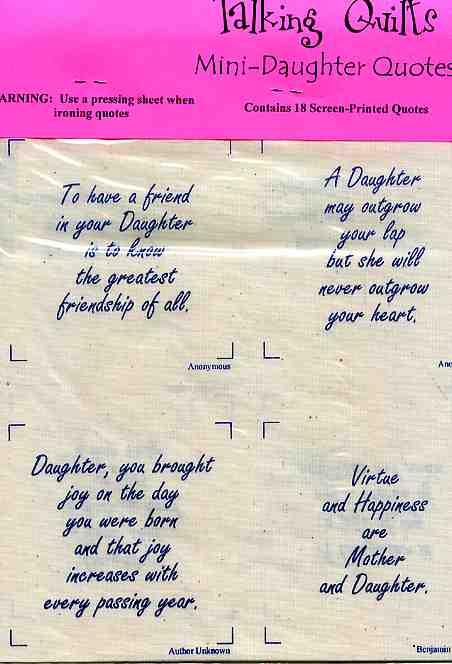 Talking Quilts
Mini-Daughter Quotes
ARNING: Use a pressing sheet when
ironing quotes
Contains 18 Screen-Printed Quotes
To have a friend
in your Daughter
is to know
the greatest
friendship of all.
Anonymous
A Daughter
may outgrow
your lap
but she will
never outgrow
your heart.
Ano
Daughter, you brought
joy on the day
you were born
and that joy
increases with
every passing year.
Author Unknown
Virtue
and Happiness
are
Mother
and Daughter.
Benjamin